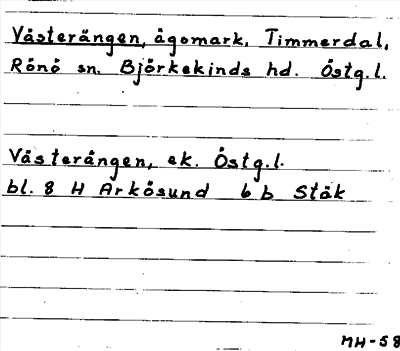 Västerängen, ägomark, Timmerdal,
Rönö sn. Björkekinds hd. Östg.l.
Västerängen, ek. Östg.l.
bl. 8 H Arkösund 6 b Stäk
MH-58